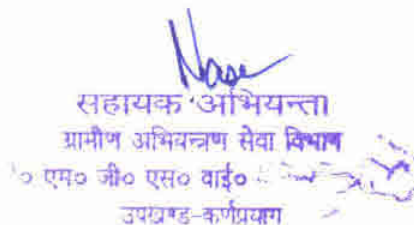 सहायक अभियन्ता
ग्रामीण अभियन्त्रण सेवा विभाग
एम० जी० एस० वाई०
उपखण्ड-कर्णप्रयाग